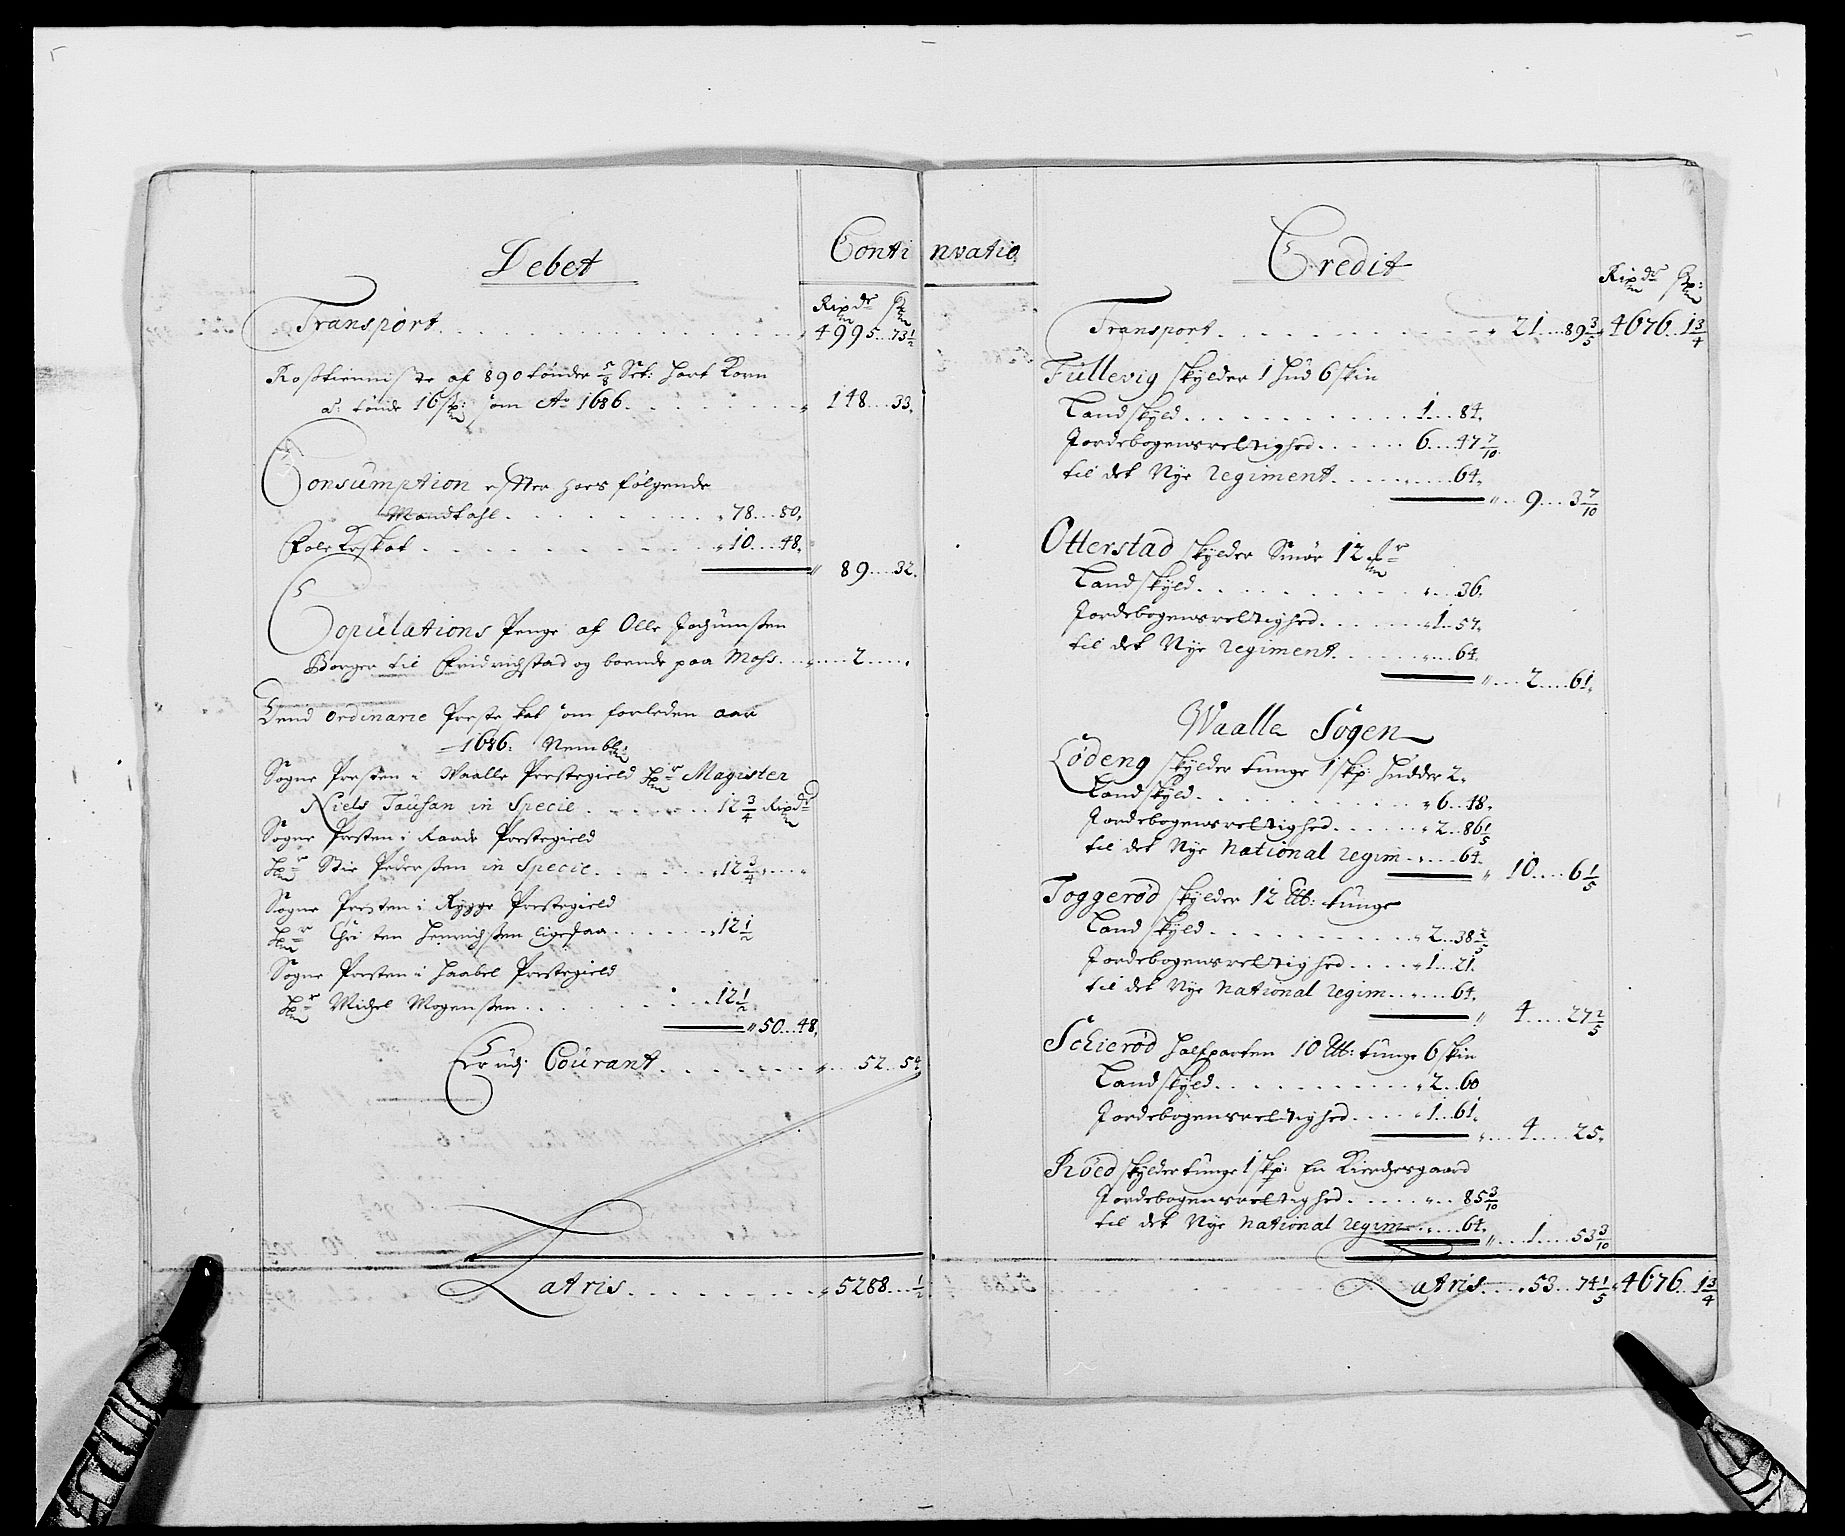 Debet
Continvatio
Rixdr sk:
Transport. . . . . . 4995...73½
Rostienniste af 890 tønder ⅝ Set: Hart Korn
a: tønde 16 sk: som Ao 1686. . . . . 148...33.
Consumption efter hoes følgende
Mandtahl. . . . . 78...80.
Folcke skat . . . . . 10...48.
89...32.
Copulations Penge af Olle Jochumsen
Borger til Fridrichstad og boende paa Moss . . . . 2 . . . .
Lend ordinarie Preste skat som forleden aar
1686: Nembl:
Sogne Presten i Waalle Prestegield Hr Magister
Niels Tausan in Specie . . . . 12¾ Rixdr
Sogne Presten i Raade Prestegield
Hr Stie Pedersen in Specie . . . . 12¾ . . . .
Sogne Presten i Rygge Prestegield
Hr Christen Henrichsen ligesaa . . . . 12½
Sogne Presten i Haabel Prestegield
Hr Michel Mogensen . . . . 12½
50...48.
Er udj Courant . . . . 52...54
Latris . . . . . 5288...½
Credit
Rixdr sk:
Transport . . . . . 21...89⅗ 4676..1¾
Fullevig skylder 1 Hud 6 skin
Landskyld . . . . . 1...84.
Jordebogens rettighed . . . . . 6...47 7/10
til det Nye regiment . . . . . 64.
9...3 7/10
Otterstad skylder Smør 12
Landskyld . . . . . 36.
Jordebogens rettighed . . . . . 1..57.
til det Nye regiment . . . . . 64.
2....61.
Waalle Sogen
Lødeng skylder tunge 1 skp: Hudder 2.
Landskyld . . . . . 6..18.
Jordebogens rettighed . . . . . 2..86⅕
til det Nye national regim . . . . 64.
10....6⅕
Toggerød skylder 12 Lb: tunge
Landskyld . . . . . 2...38⅖
Jordebogens rettighed . . . . . 1...21.
til det Nye national regim . . . . 64.
4.....27⅖
Schierød halfparten 10 Lb: tunge 6 skin
Landskyld . . . . . 2..60
Jordebogens rettighed . . . . . 1..61.
4.....25.
Røed skylder tunge 1 skp: En Kierchesgaard
Jordebogens rettighed . . . . . 85 3/10
til det Nye national regim . . . . 64.
1....53 3/10
Latris . . . . 53...74⅕ 4676..1¾